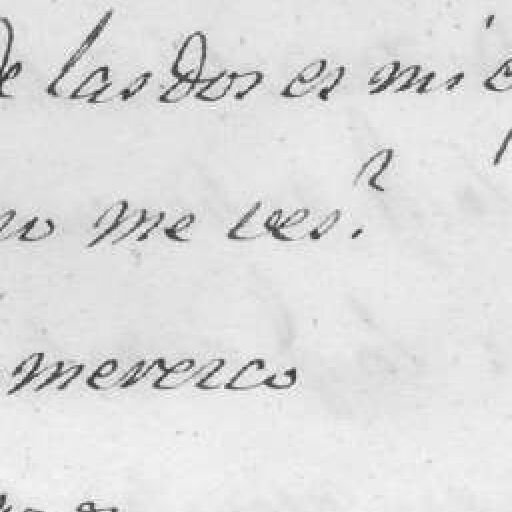 de las dos es mi
no me ves?
merezco